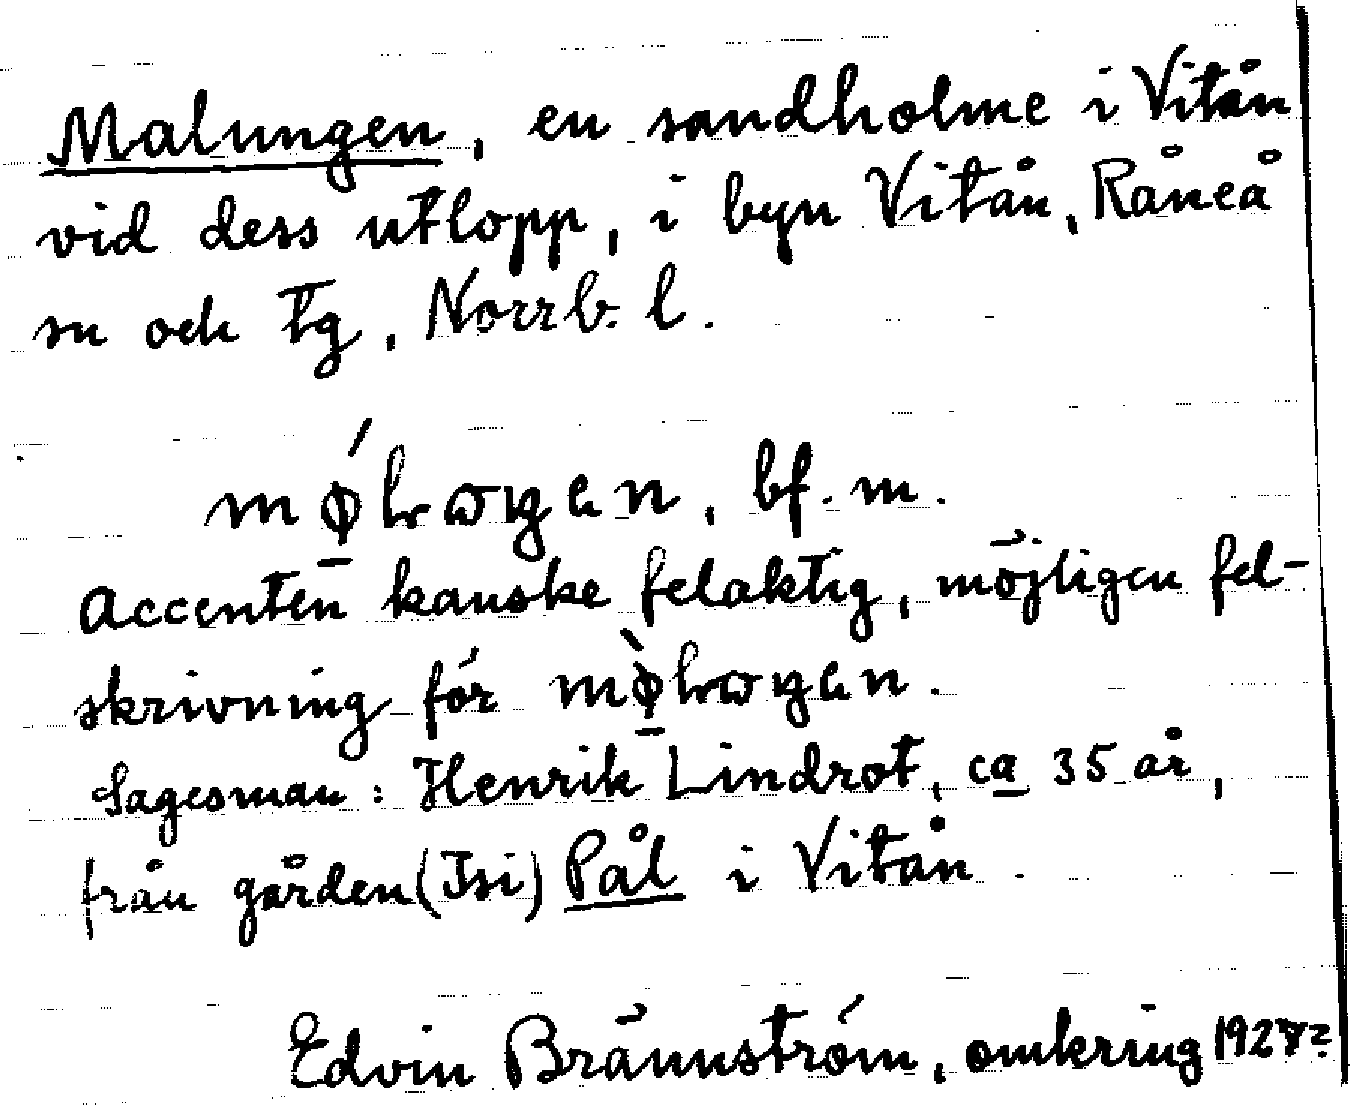 Malungen, en sandholme i Vitån
vid dess utlopp, i byn Vitån, Råneå
sn och tg, Norrb. l.
bf. m.
Accenten kanske felaktig, möjligen fel-
skrivning för
Sagesman: Henrik Lindrot, ca 35 år,
från gården (Isi) Pål i Vitån.
Edvin Brännström, omkring